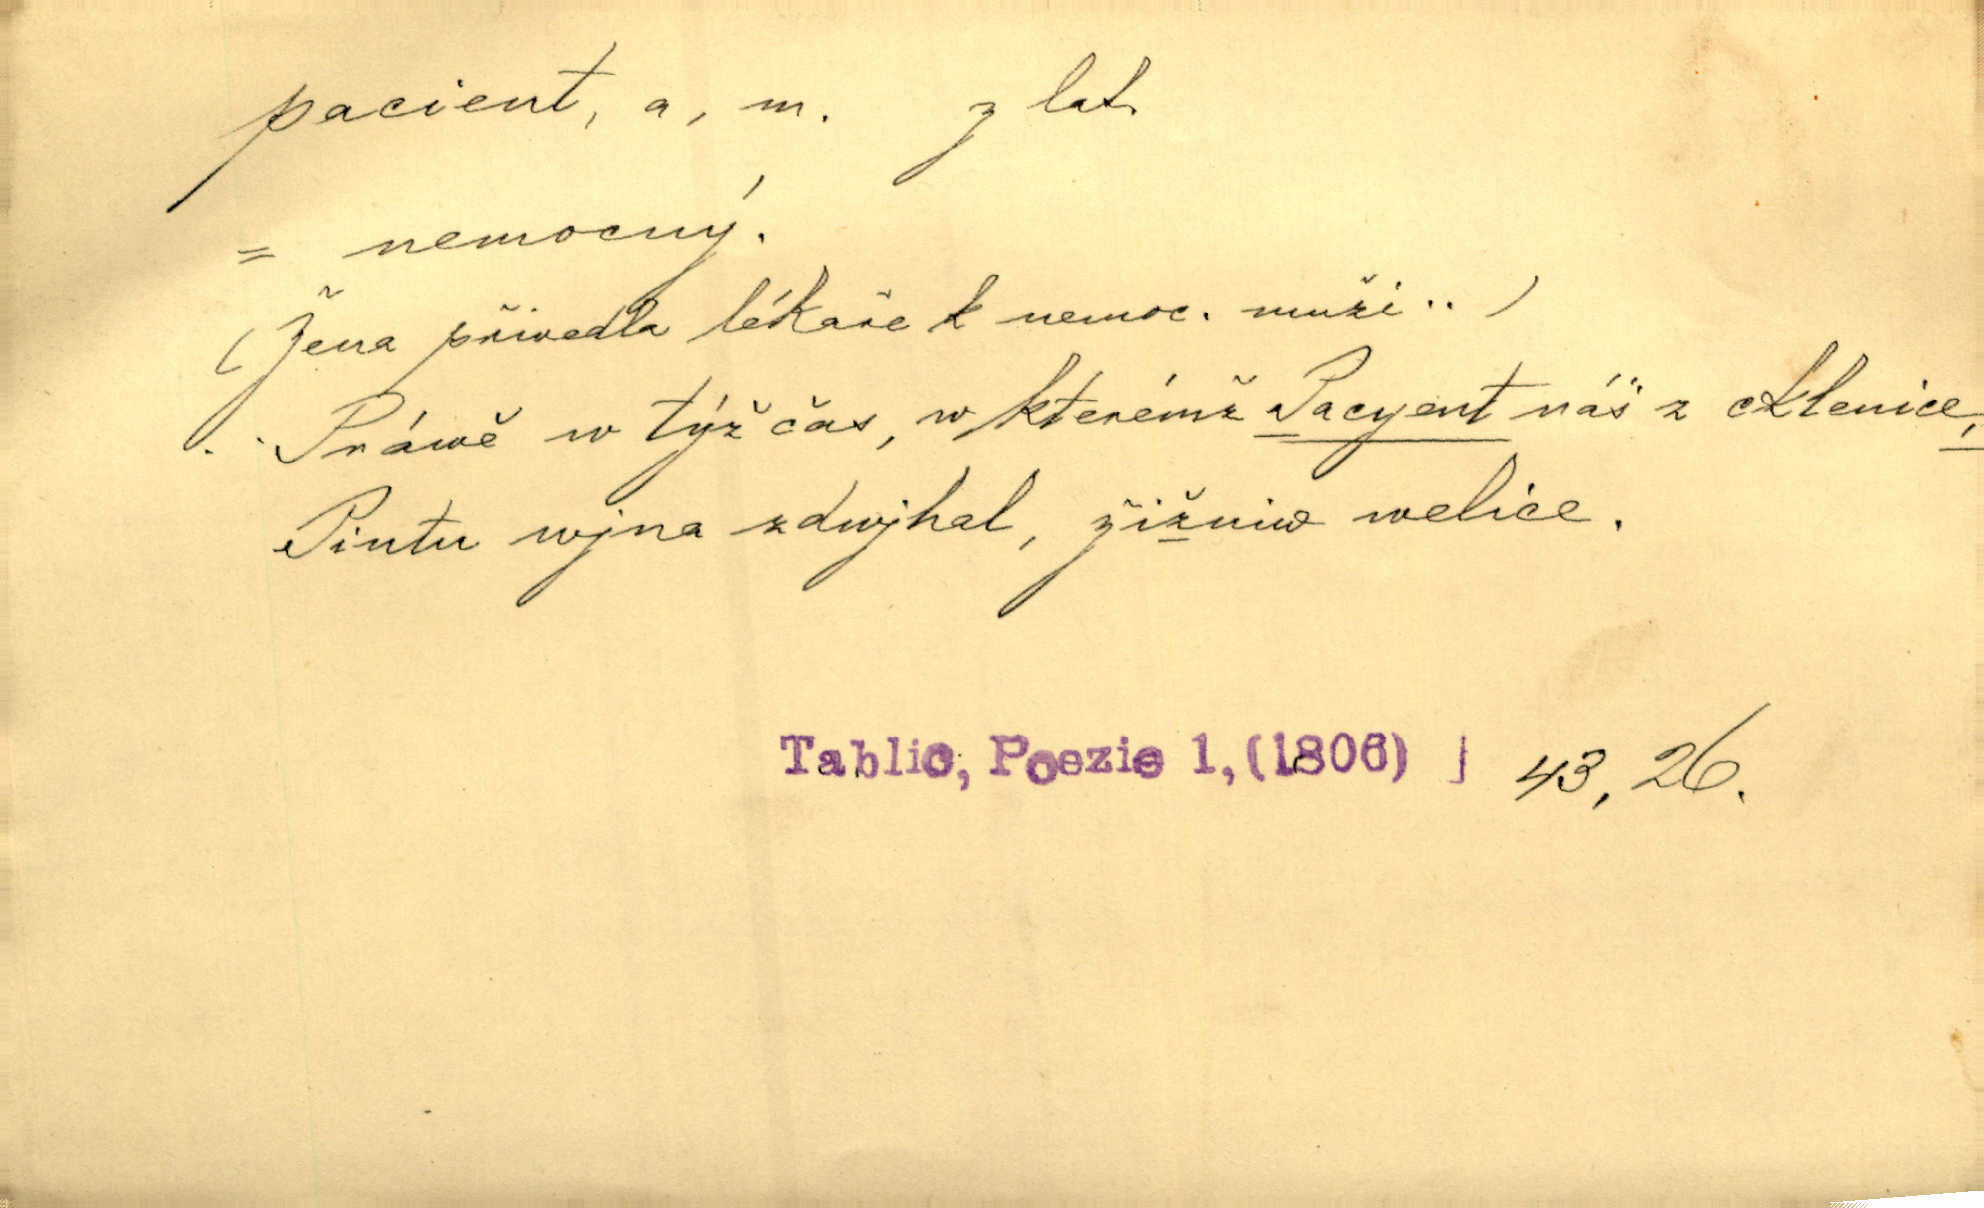 pacient, a, m. z lat.
= nemocný.
(Žena přivedla lékaře k nemoc. muži .. )
. Práwě w týž čas, w kterémž Pacyent náš z sklenice,
Pintu wjna zdwjhal, žižniw welice.
Tablic, Poezie 1, (1806) | 43, 26.